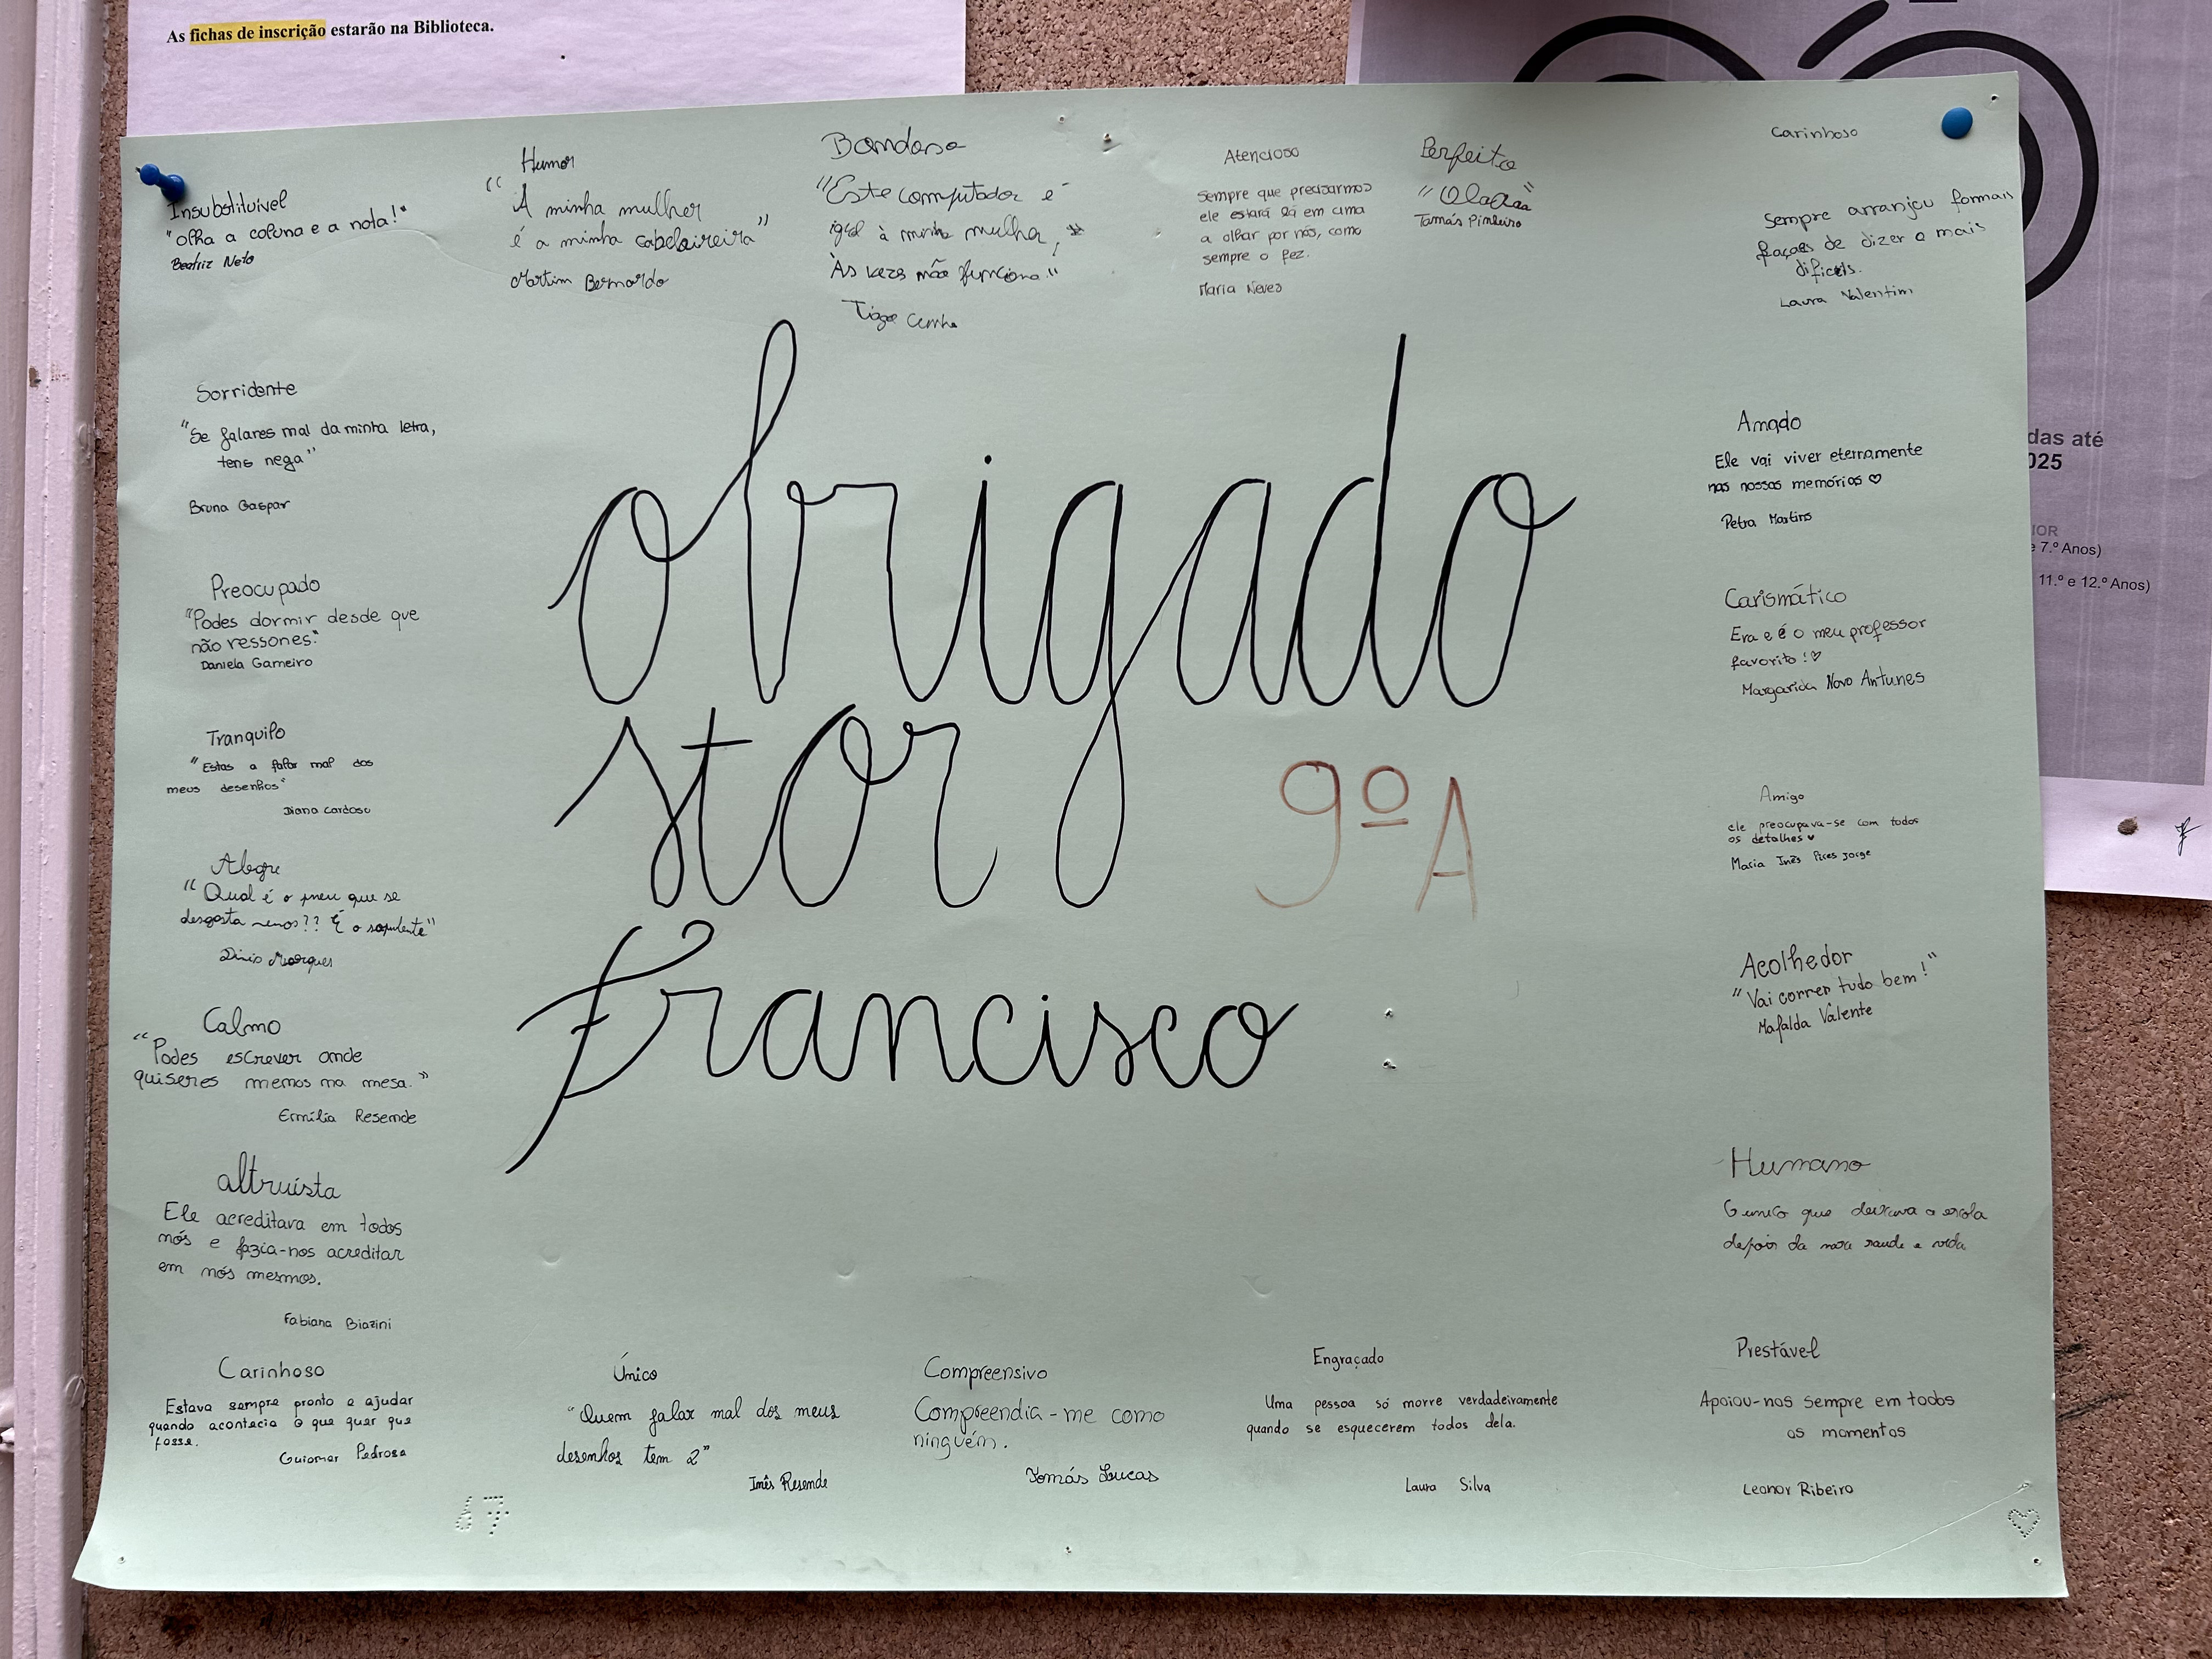 As fichas de inscrição estarão na Biblioteca.
Insubstituivel
"olha a coluna e a nota!"
Beatriz Neto
Humor
"A minha mulher
é a minha cabeleireira"
Martim Bernardo
Bondoso
"Este computador é
igual à minha mulher,
Às vezes não funciona."
Tiago Cunha
Atencioso
Sempre que precisarmos
ele estará lá em cima
a olhar por nós, como
sempre o fez.
Maria Neves
Perfeito
"Olaaaa"
Tomás Pinheiro
Carinhoso
Sempre arranjou formais
façaes de dizer o mais
dificels.
Laura Valentim
Sorridente
"Se falares mal da minha letra,
tens nega"
Bruna Gaspar
Preocupado
"Podes dormir desde que
não ressones."
Daniela Gameiro
Tranquilo
"Estas a falar mal dos
meus desenhos"
Diana Cardoso
Alegre
"Qual é o pneu que se
desgasta menos?? É o soplente"
Dinis Marques
Calmo
"Podes escrever onde
quiseres menos na mesa."
Emília Resende
altruísta
Ele acreditava em todos
nós e fazia-nos acreditar
em nós mesmos.
Fabiana Biazini
Carinhoso
Estava sempre pronto a ajudar
quando acontecia o que quer que
fosse.
Guiomar Pedrosa
obrigado
stor
9º A
Francisco
Único
"Quem falar mal dos meus
desenhos tem 2"
Inês Resende
Compreensivo
Compreendia-me como
ninguém.
Tomás Lucas
Engraçado
Uma pessoa só morre verdadeiramente
quando se esquecerem todos dela.
Laura Silva
Amado
Ele vai viver eternamente
nas nossas memórias ♡
Petra Martins
Carismático
Era e é o meu professor
favorito!♡
Margarida Novo Antunes
Amigo
ele preocupava-se com todos
os detalhes ♥
Maria Inês Pires Jorge
Acolhedor
"Vai correr tudo bem!"
Mafalda Valente
Humano
O unico que deixava a escola
depois da nossa saude e vida
Prestável
Apoiou-nos sempre em todos
os momentos
Leonor Ribeiro
67
das até
025
IOR
e 7.º Anos)
11.º e 12.º Anos)